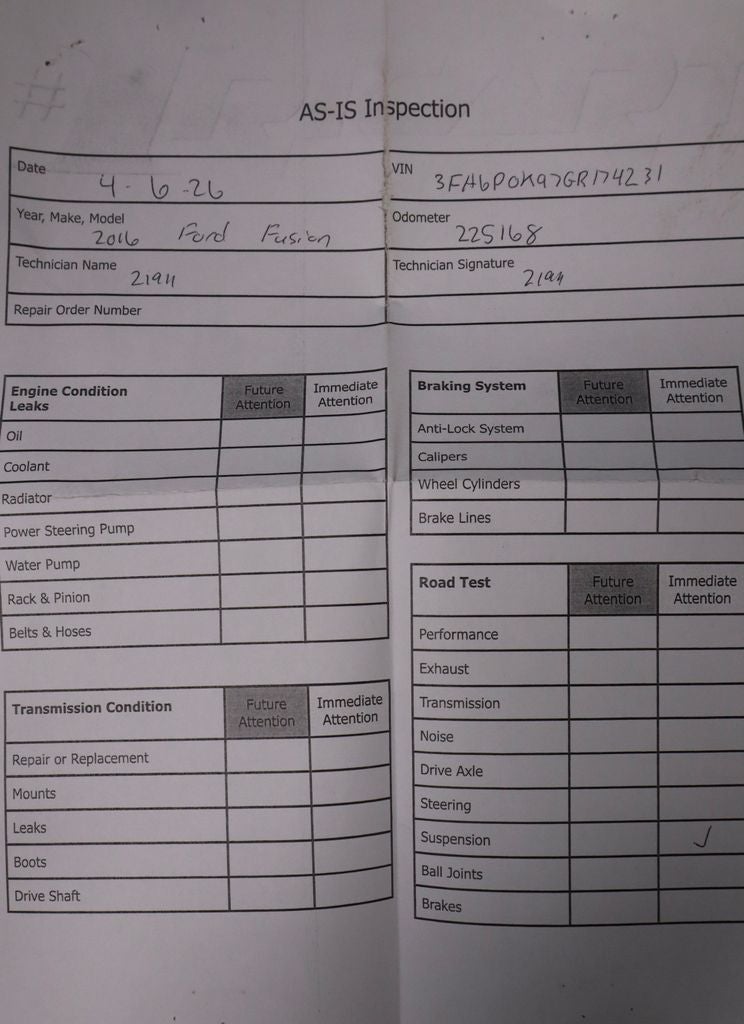 AS-IS Inspection
Date 4-6-26
VIN 3FA6P0K97GR174231
Year, Make, Model 2016 Ford Fusion
Odometer 225168
Technician Name 21911
Technician Signature
Repair Order Number
Engine Condition Leaks Future Attention Immediate Attention
Oil
Coolant
Radiator
Power Steering Pump
Water Pump
Rack & Pinion
Belts & Hoses
Transmission Condition Future Attention Immediate Attention
Repair or Replacement
Mounts
Leaks
Boots
Drive Shaft
Braking System Future Attention Immediate Attention
Anti-Lock System
Calipers
Wheel Cylinders
Brake Lines
Road Test Future Attention Immediate Attention
Performance
Exhaust
Transmission
Noise
Drive Axle
Steering
Suspension ✓
Ball Joints
Brakes